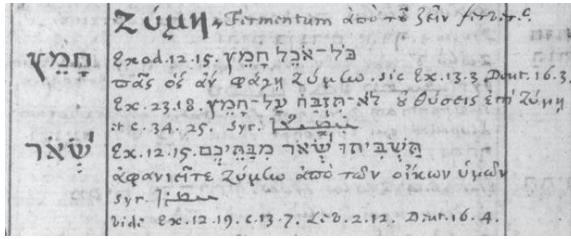 Ζύμη, Fermentum ἀπὸ τοῦ ζεῖν fervere.
חָמֵץ Exod. 12. 15. כֹּל־אֹכֵל חָמֵץ
πᾶς ὃς ἂν φάγῃ ζύμην. sic Ex. 13. 3. Deut. 16. 3.
Ex. 23. 18. לֹא־תִזְבַּח עַל־חָמֵץ οὐ θύσεις ἐπὶ ζύμῃ
et c. 34. 25. Syr.
שְׂאֹר Ex. 12. 15. תַּשְׁבִּיתוּ שְּׂאֹר מִבָּתֵּיכֶם
ἀφανιεῖτε ζύμην ἀπὸ τῶν οἴκων ὑμῶν
Syr.
Vide Ex. 12. 19. c. 13. 7. Lev. 2. 12. Deut. 16. 4.